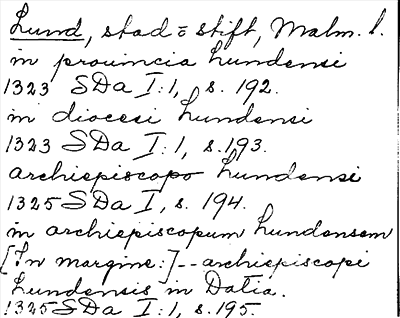 Lund, stad = stift, Malm. l.
in prouincia Lundensi
1323 SDa I:1, s. 192.
in diocesi Lundensi
1323 SDa I:1, s. 193.
archiepiscopo Lundensi
1325 SDa I, s. 194.
in archiepiscopum Lundensem
[In margine:]-- archiepiscopi
Lundensis in Datia.
1325 SDa I:1, s. 195.